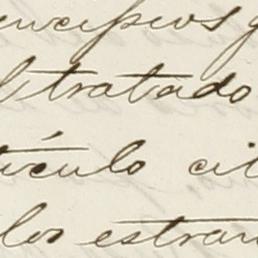 encipios y
l tratado
tículo cit
los estran